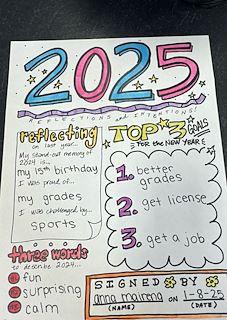 2025
REFLECTIONS and INTENTIONS!
reflecting
on last year...
My stand-out memory of
2024 is...
my 15th birthday
I was proud of...
my grades
I was challenged by...
sports
Three words
to describe 2024...
#1 fun
#2 surprising
#3 calm
TOP 3 GOALS
FOR the NEW YEAR
1. better
grades
2. get license
3. get a job
SIGNED BY
anna mairena on 1-8-25
(NAME) (DATE)